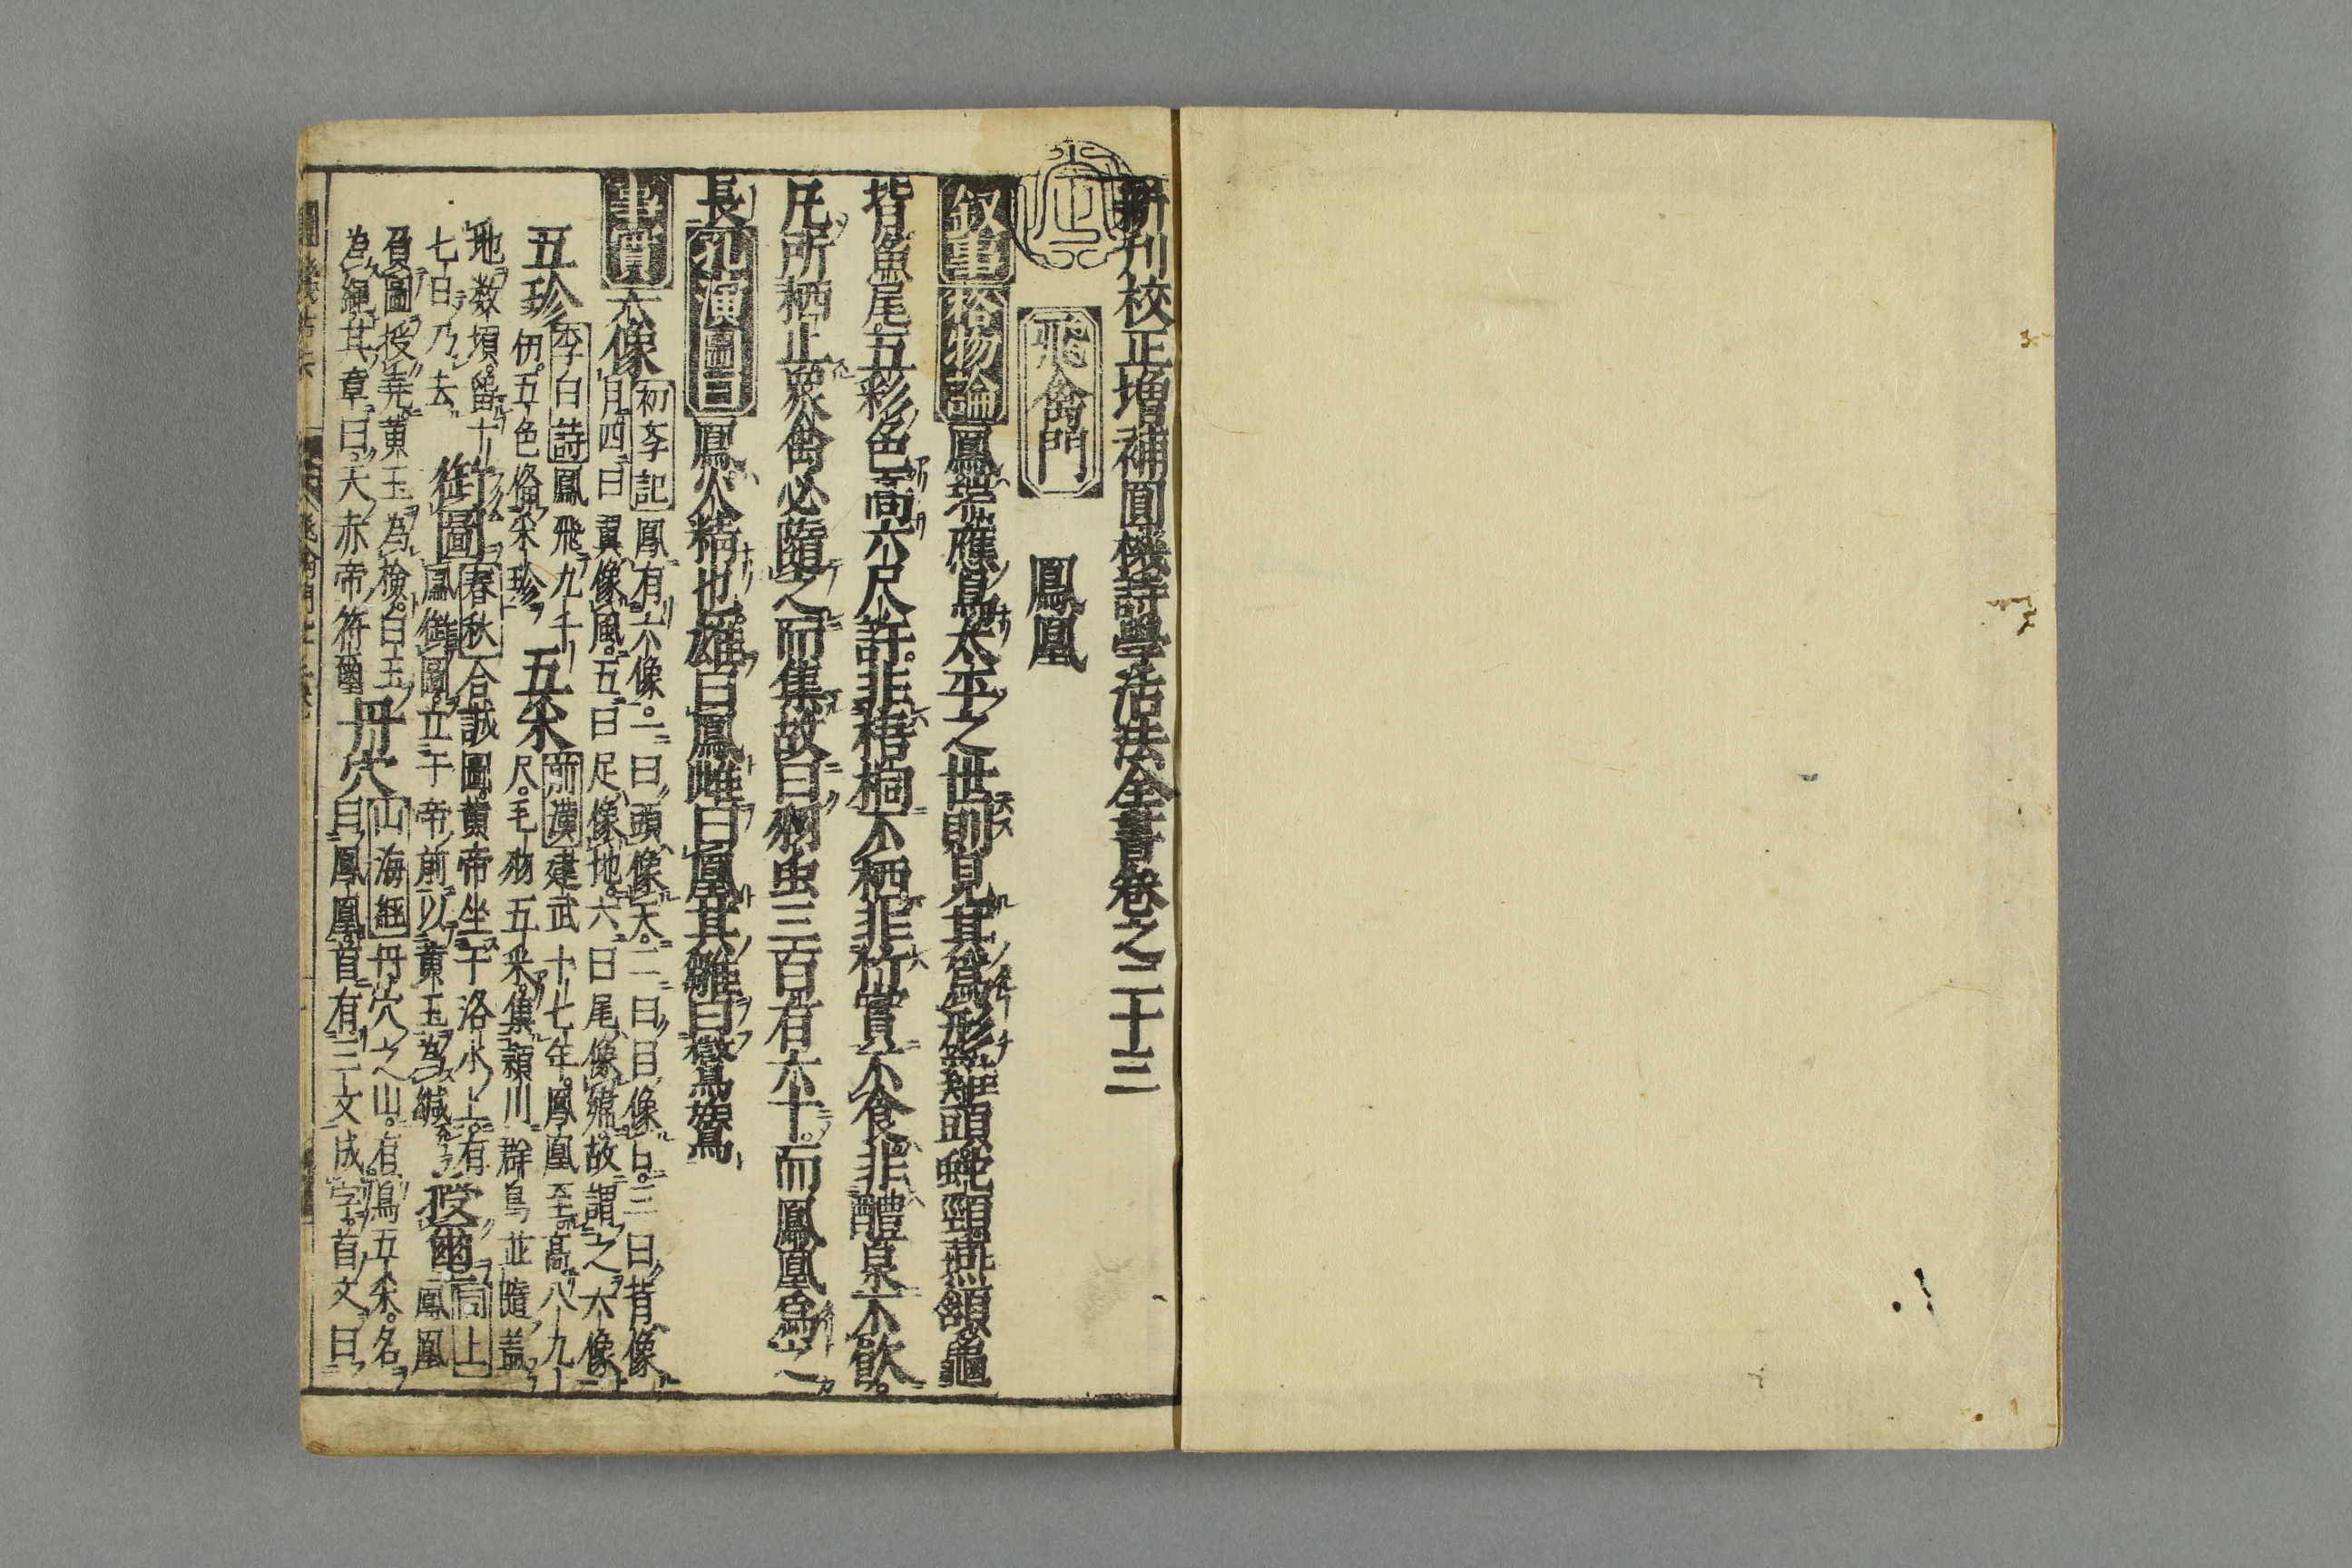 新刊校正増補圓機詩學活法全書卷之二十三
飛禽門　鳳凰
叙事 格物論 鳳瑞應鳥太平之世則見其爲形雞頭蛇頸燕頷龜
背魚尾五彩色高六尺許非梧桐不栖非竹實不食非醴泉不飲
凡所栖止衆禽必隨之而集故曰羽虫三百有六十而鳳凰爲之
長 孔演圖曰 鳳火精也雄曰鳳雌曰凰其雛曰鸑鷟
事實 六像 初斈記 鳳有六像一曰頭像天二曰目像日三曰背像
月四曰翼像風五曰足像地六曰尾像緯故謂之六像
五珍 李白詩 鳳飛九千
仞五色偹采珍
五采 前漢 建武十七年鳳凰至高八九
尺毛羽五采集潁川群鳥並隨蓋
地数頃留十
七日乃去
啣圖 春秋合誠圖 黄帝坐于洛水上有
鳳啣圖立于帝前以黄玉爲緘
授璽 同上 鳳凰
負圖授堯黄玉為檢白玉
為繩其章曰天赤帝符璽
丹穴 山海經 丹穴之山有鳥五采名
曰鳳凰首有三文成字首文曰